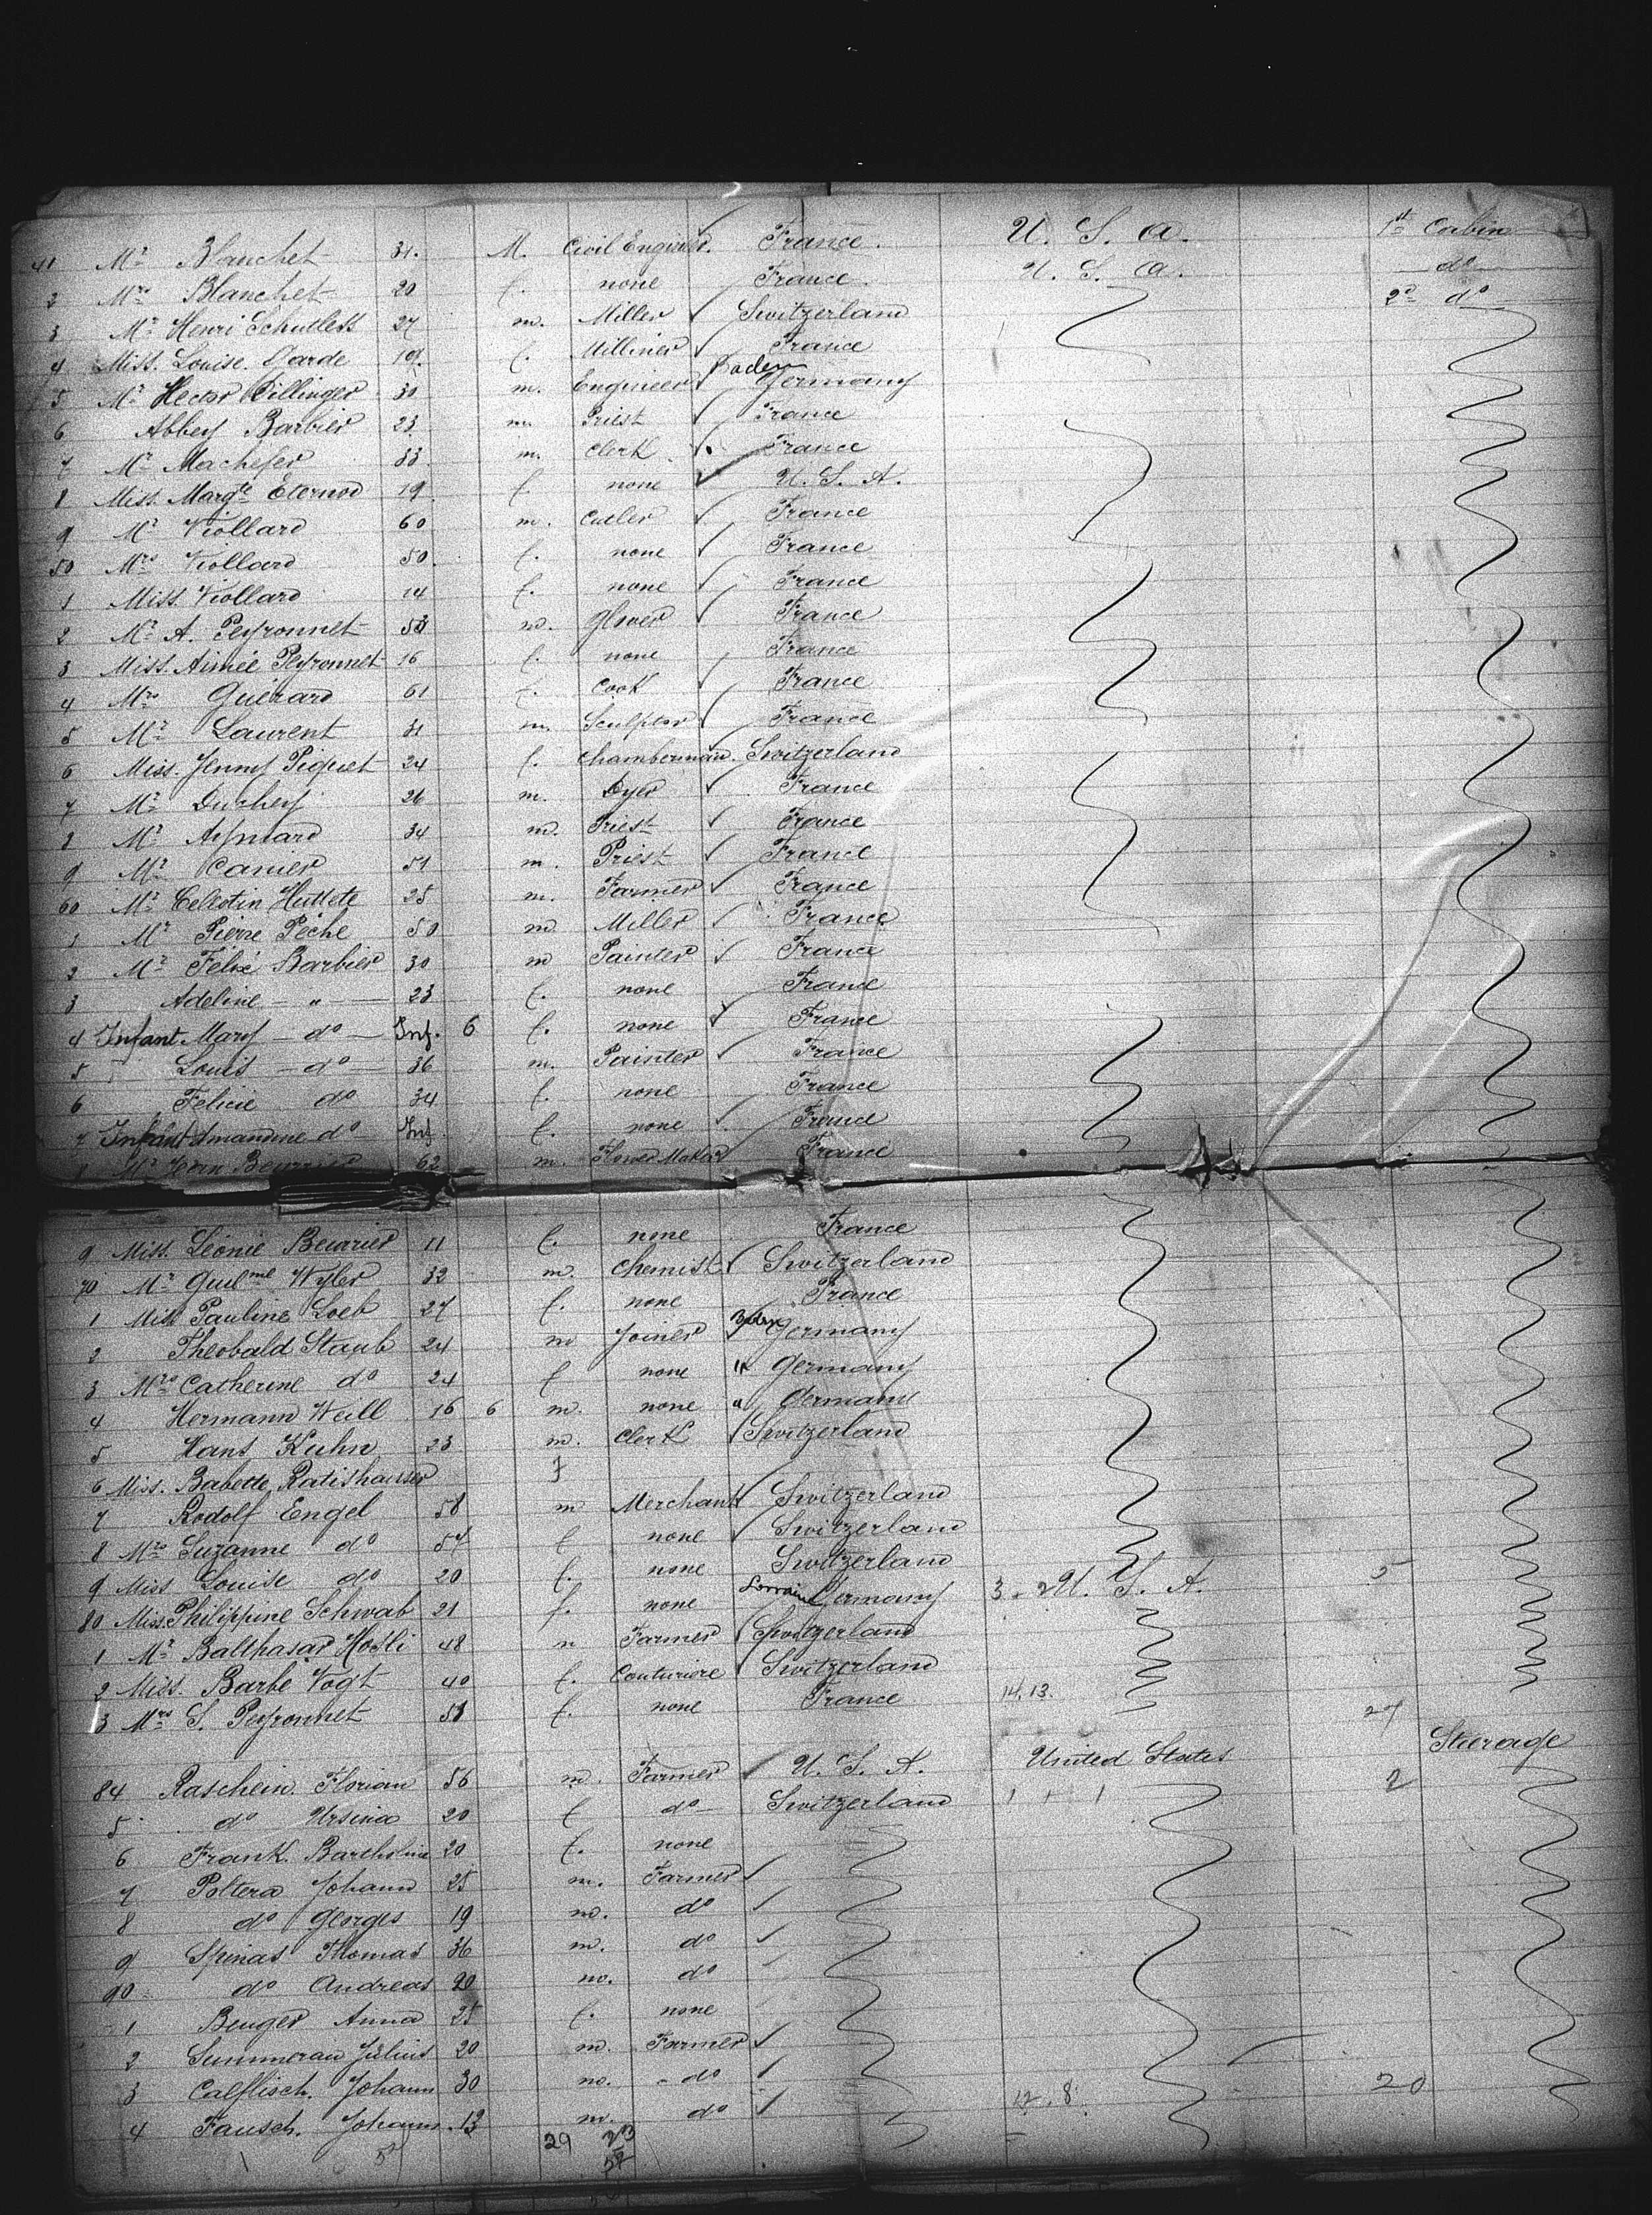 41 Mr Blanchet 31. M. Civil Engineer. France. U. S. A. 1st Cabin
2 Mrs Blanchet 20 f. none France. U. S. A. do
3 Mr Henri Schutless 27 m. Miller Switzerland 2d do
4 Miss. Louise. Darde 19. f. Milliner France
5 Mr Hector Dillinger 30 m. Engineer Baden Germany
6 Abbey Barbier 23 m. Priest France
7 Mr Machefer 33 m. Clerk France
8 Miss. Margte Eternod 19 f. none U. S. A.
9 Mr Viollard 60 m. Cutler France
50 Mrs Viollard 50. f. none France
1 Miss. Viollard 14 f. none France
2 Mr A. Peyronnet m. Glover France
3 Miss. Aimée Peyronnet 16 f. none France
4 Mrs Guérard 61 f. Cook France
5 Mr Laurent 31 m. Sculptor France
6 Miss. Jenny Piquet 24 f. Chambermaid. Switzerland
7 Mr Duchey 26 m. Dyer France
8 Mr Aymard 34 m. Priest France
9 Mr Canier 51 m. Priest France
60 Mr Celestin Huttete 25 m. Farmer France
1 Mr Pierre Péché 50 m Miller France
2 Mr Félix Barbier 30 m Painter France
3 Adeline — " — 23 f. none France
4 Infant Mary — do — Inf. 6 f. none France
5 Louis — do — 36 m. Painter France
6 Felicie do 34 f. none France
7 Infant Amandine do Inf. f. none France
8 Mr Jean Beurrier 62 m. Flower Maker France
9 Miss. Léonie Beurrier 11 f. none France
70 Mr Guilme Wyler 32 m. Chemist Switzerland
1 Miss Pauline Loeb 27 f. none France
2 Theobald Staub 24 m Joiner Baden Germany
3 Mrs Catherine do 24 f none " Germany
4 Hermann Weill 16 6 m. none " Germany
5 Hans Kuhn 23 m. Clerk Switzerland
6 Miss. Babette Ratishauser f
7 Rodolf Engel 58 m Merchant Switzerland
8 Mrs Suzanne do 57 f none Switzerland
9 Miss Louise do 20 f. none Switzerland 5
80 Miss. Philippine Schwab 21 f. none Lorraine Germany 3 - 2 U. S. A.
1 Mr Balthasar Hosli 48 m Farmer Switzerland
2 Miss. Barbe Vogt 40 f. Couturiere Switzerland
3 Mrs S. Peyronnet 51 f. none France 14. 13. 27
Steerage
84 Raschein. Florian 56 m. Farmer U. S. A. United States 2
5 do Ursina 20 f do Switzerland 1 + 1
6 Frank. Bartholine 20 f. none
7 Poltera Johann 25 m. Farmer
8 do Georges 19 m. do
9 Spinas Thomas 36 m. do
90 do Andreas 20 m. do
1 Beuger Anna 25 f. none
2 Summerau Julius 20 m. Farmer
3 Calflisch. Johann 30 m. do
4 Fausch. Johann. 13 m. do 12. 8. 20
29 23